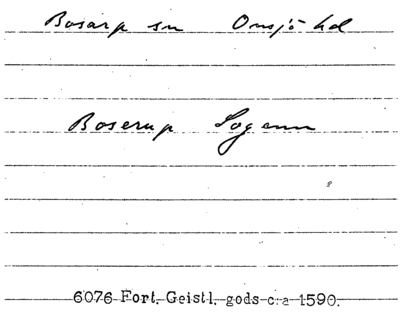 Bosarp sn Onsjö hd
Boserup Sogenn
6076 Fort. Geistl. gods c:a 1590.